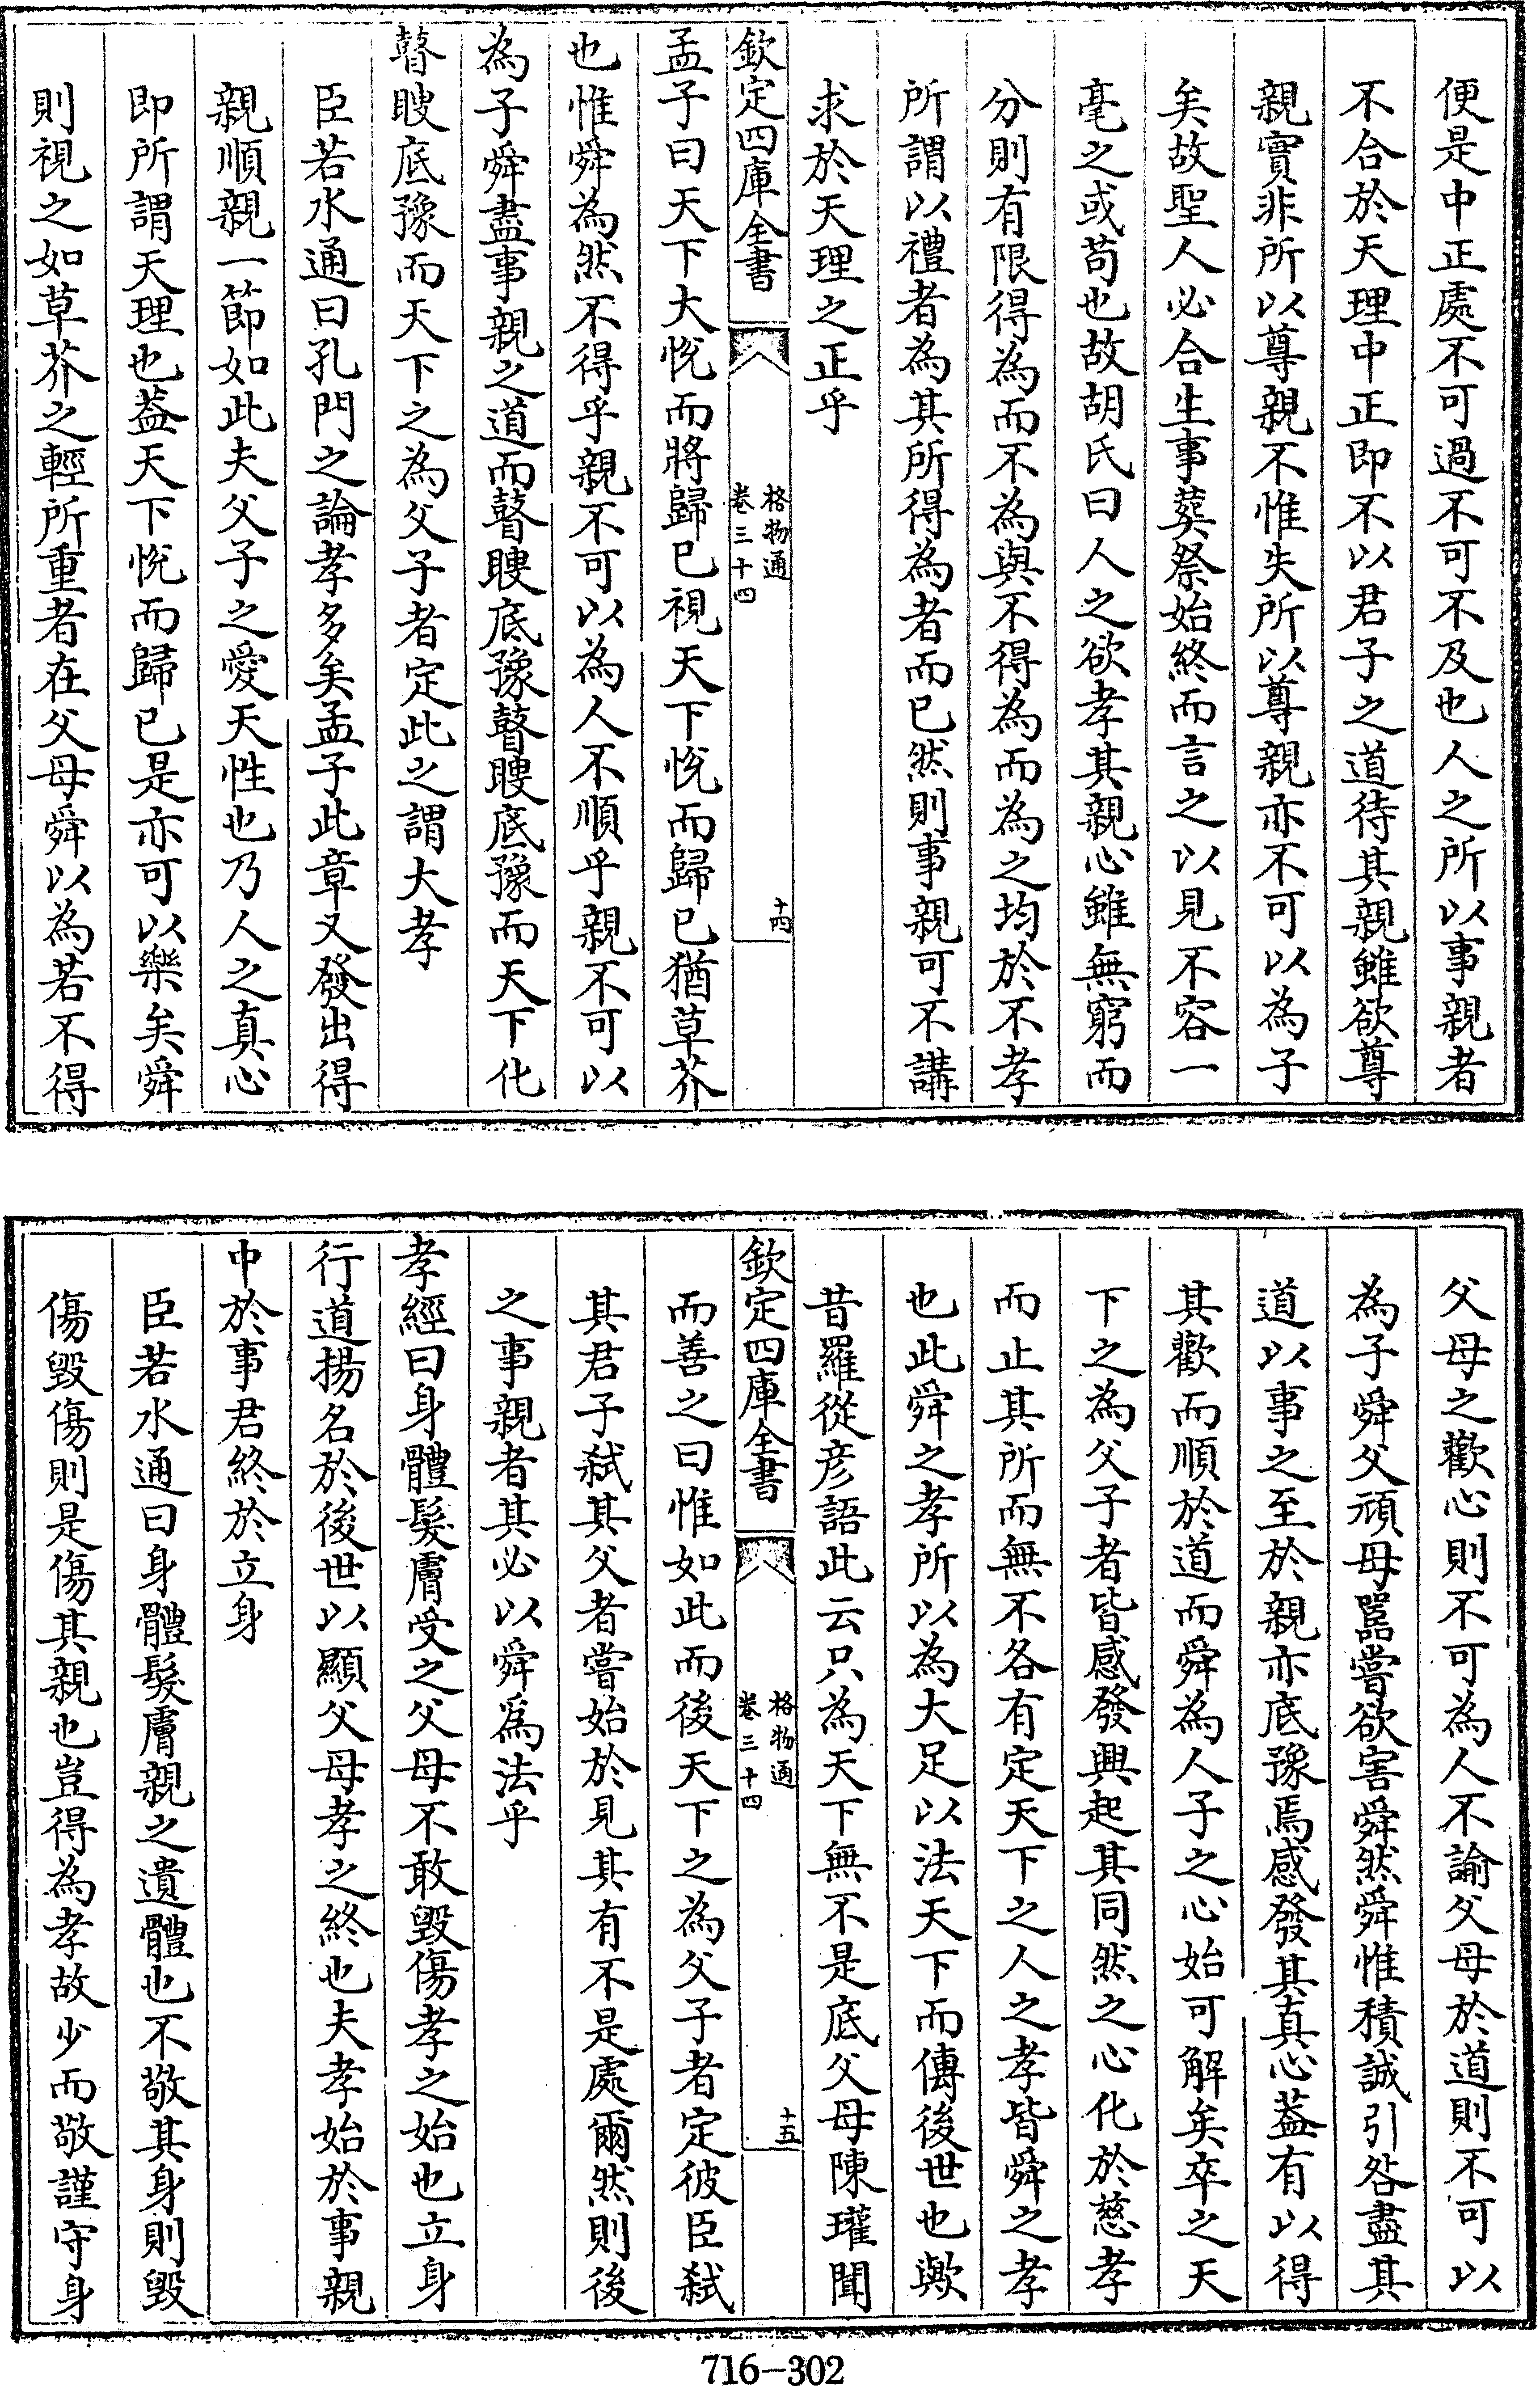 便是中正處不可過不可不及也人之所以事親者
不合於天理中正即不以君子之道待其親雖欲尊
親實非所以尊親不惟失所以尊親亦不可以為子
矣故聖人必合生事葬祭始終而言之以見不容一
毫之或苟也故胡氏曰人之欲孝其親心雖無窮而
分則有限得為而不為與不得為而為之均於不孝
所謂以禮者為其所得為者而已然則事親可不講
求於天理之正乎
欽定四庫全書
格物通
卷三十四
十四
孟子曰天下大悅而將歸已視天下悅而歸已猶草芥
也惟舜為然不得乎親不可以為人不順乎親不可以
為子舜盡事親之道而瞽瞍底豫瞽瞍底豫而天下化
瞽瞍底豫而天下之為父子者定此之謂大孝
臣若水通曰孔門之論孝多矣孟子此章又發出得
親順親一節如此夫父子之愛天性也乃人之真心
即所謂天理也葢天下悅而歸已是亦可以樂矣舜
則視之如草芥之輕所重者在父母舜以為若不得
父母之歡心則不可為人不諭父母於道則不可以
為子舜父頑母嚚嘗欲害舜然舜惟積誠引咎盡其
道以事之至於親亦底豫焉感發其真心葢有以得
其歡而順於道而舜為人子之心始可解矣卒之天
下之為父子者皆感發興起其同然之心化於慈孝
而止其所而無不各有定天下之人之孝皆舜之孝
也此舜之孝所以為大足以法天下而傳後世也歟
昔羅從彦語此云只為天下無不是底父母陳瓘聞
欽定四庫全書
格物通
卷三十四
十五
而善之曰惟如此而後天下之為父子者定彼臣弑
其君子弑其父者嘗始於見其有不是處爾然則後
之事親者其必以舜爲法乎
孝經曰身體髮膚受之父母不敢毀傷孝之始也立身
行道揚名於後世以顯父母孝之終也夫孝始於事親
中於事君終於立身
臣若水通曰身體髮膚親之遺體也不敬其身則毀
傷毀傷則是傷其親也豈得為孝故少而敬謹守身
716-302